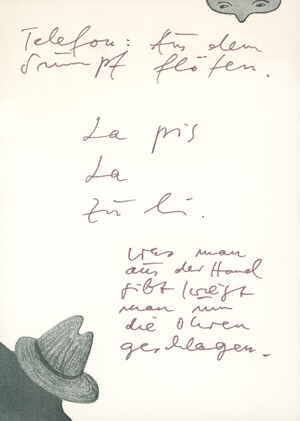 Telefon: Aus dem
Sumpf flöten.
La pis
La
Zü li.
was man
aus der Hand
gibt kriegt
man um
die Ohren
geschlagen.